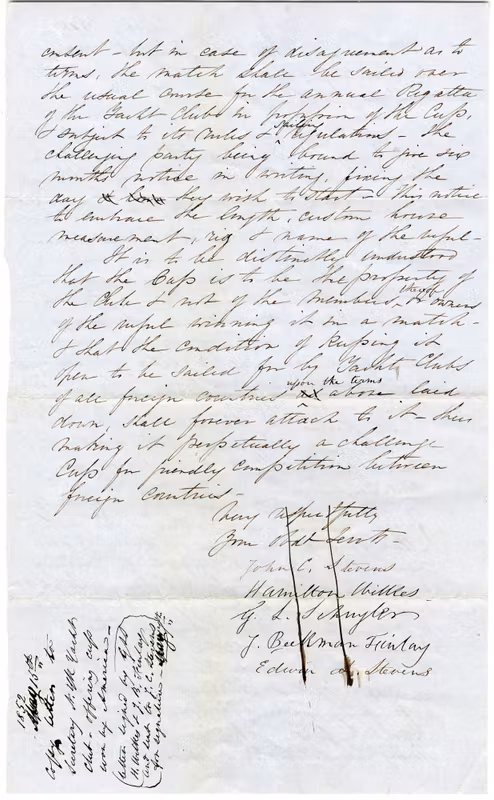 consent - but in case of disagreement as to
terms, the match shall be sailed over
the usual course for the annual Regatta
of the Yacht Club in possession of the Cup,
& subject to its rules & sailing regulations - the
challenging party being bound to give six
months notice in writing, fixing the
day they wish to start - This notice
to embrace the length, custom house
measurement, rig & name of the vessel -
It is to be distinctly understood
that the Cup is to be the property of
the Club & not of the members thereof or owners
of the vessel winning it in a match -
& that the condition of keeping it
open to be sailed for by Yacht Clubs
of all foreign countries upon the terms above laid
down, shall forever attach to it - thus
making it perpetually a challenge
Cup for friendly competition between
foreign Countries -
Very respectfully
Your Obdt Servts -
John C. Stevens
Hamilton Wilkes
G. L. Schuyler
J. Beekman Finlay
Edwin A. Stevens
1852
15th
Copy letter to
Secretary N.Y. Yacht
Club - offering cup
won by America -
(letter signed by GLS
H. Wilkes & J. B. Finlay
and sent to J. C. Stevens
for signature -